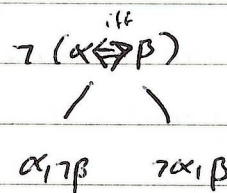 iff
¬ (α ⇔ β)
α, ¬β ¬α, β